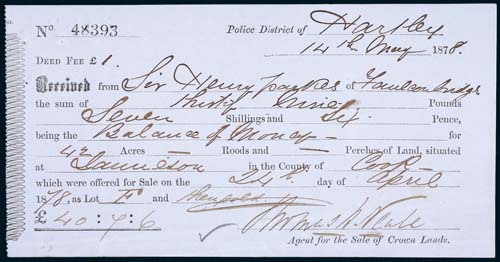 No. 48393 Police District of Hartley
14th May 1878.
DEED FEE £1.
Received from Sir Henry Parkes of Faulconbridge
the sum of Thirty Nine Pounds
Seven Shillings and Six Pence,
being the Balance of Money — for
42 Acres — Roods and — Perches of Land, situated
at Jamieson in the County of Cook
which were offered for Sale on the 24th day of April
1878, as Lot and
£ 40 : 7 : 6
Agent for the Sale of Crown Lands.